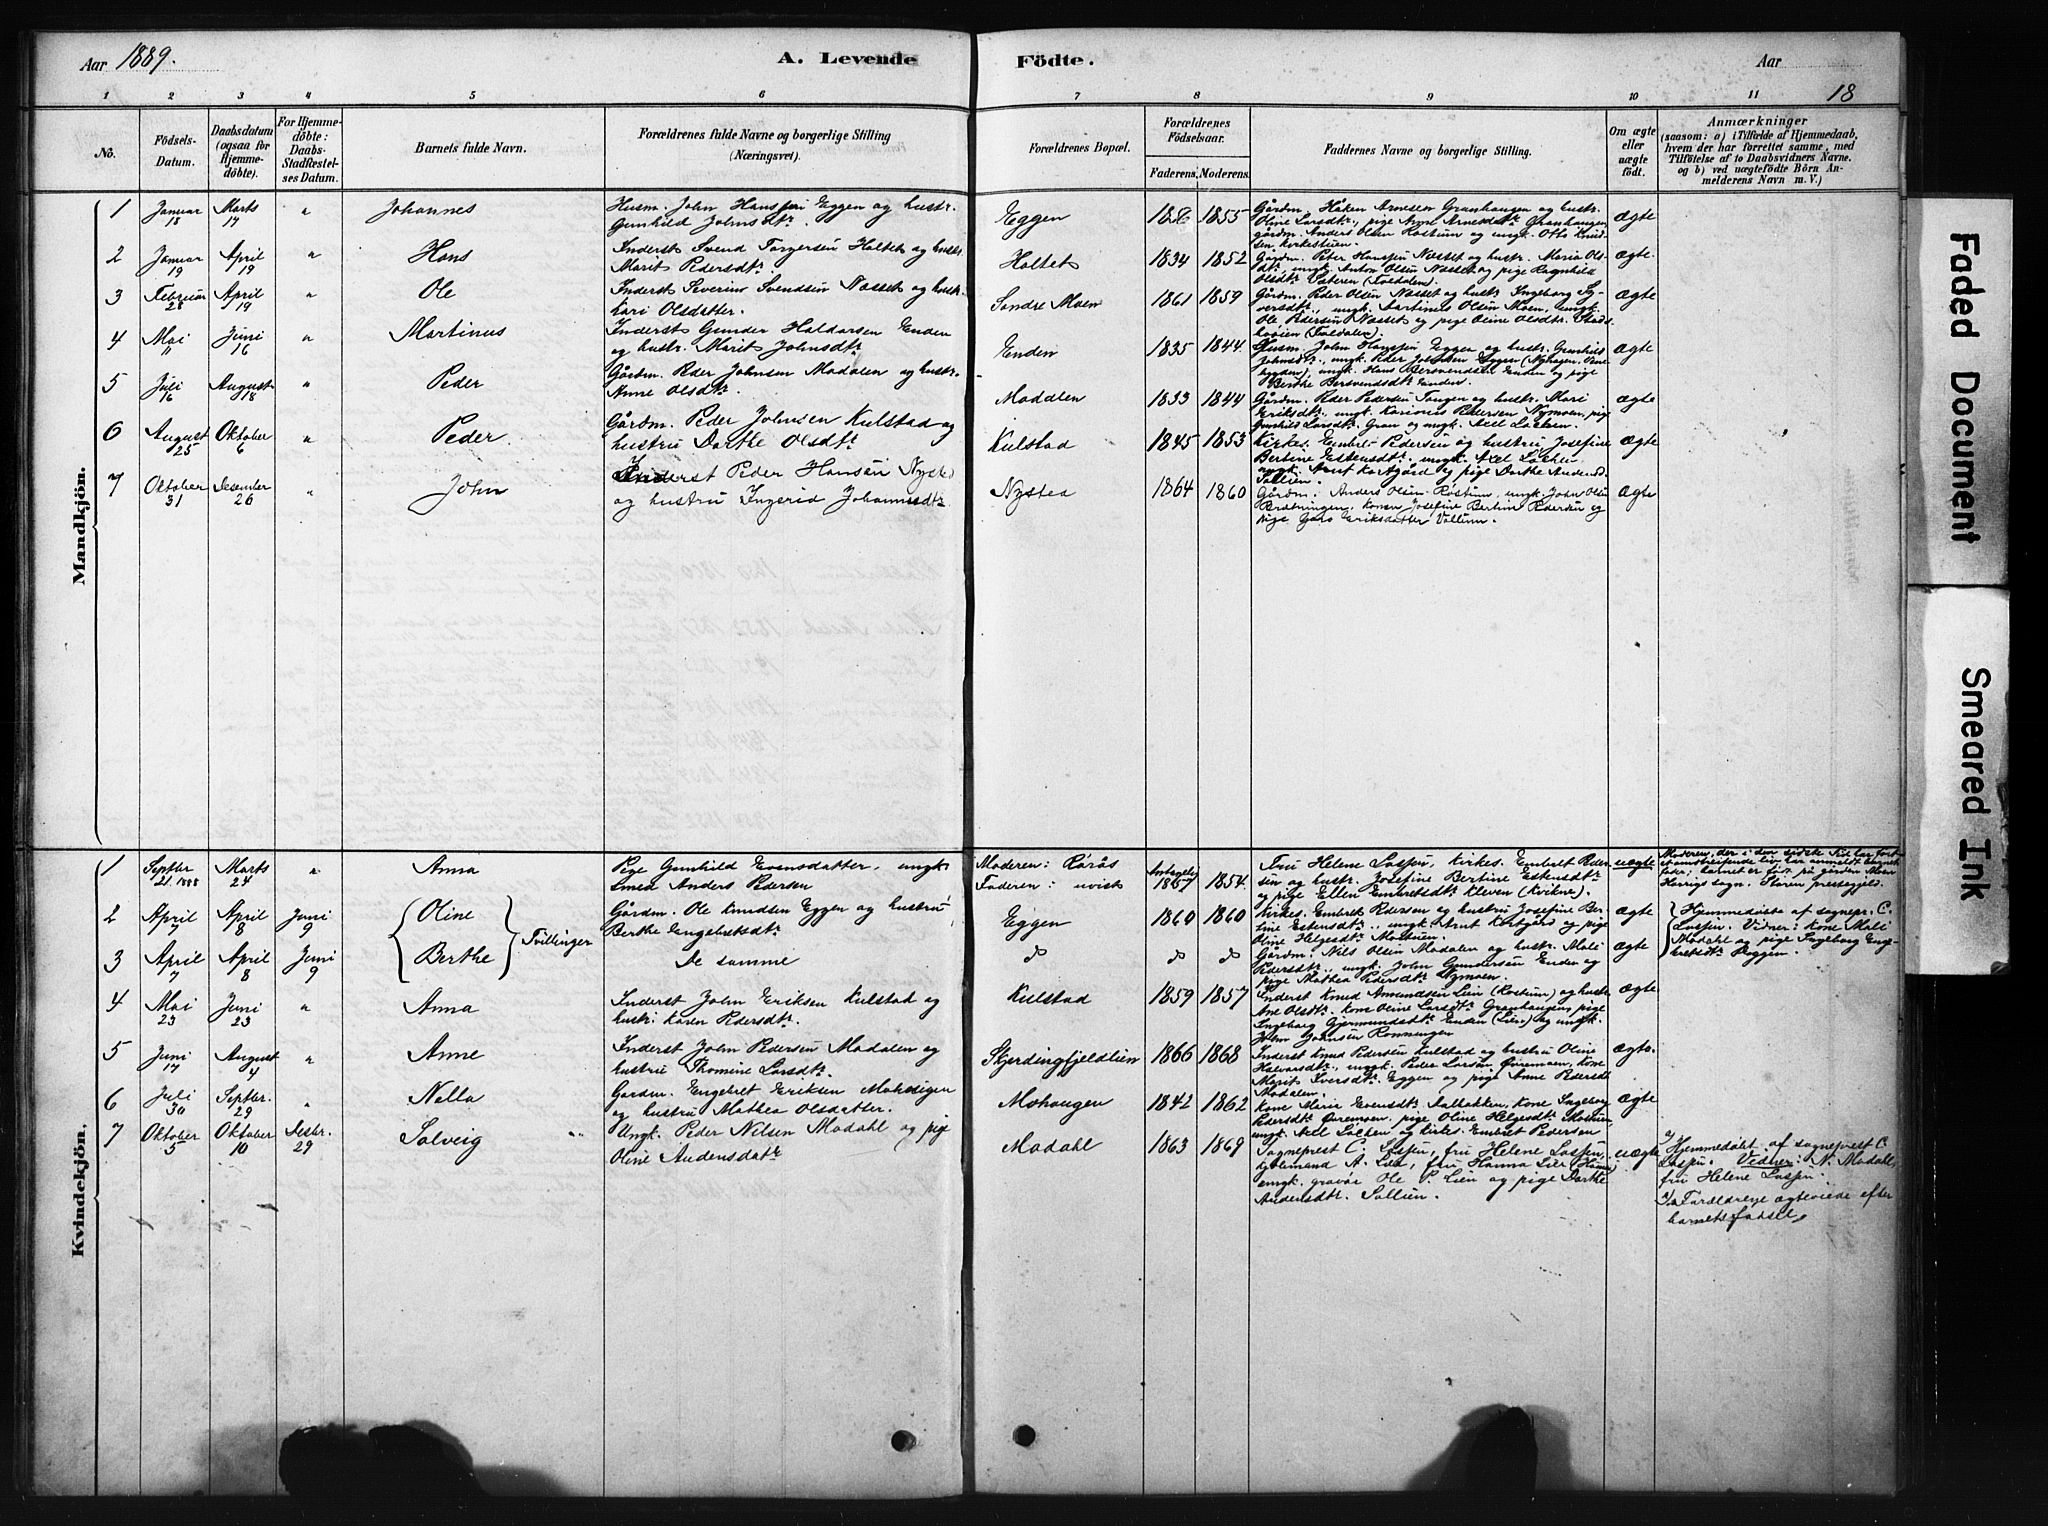 Aar 1889.
A. Levende
Födte.
Aar
18
1 2 3 4 5 6 7 8 9 10 11
No.
Födsels-Datum.
Daabsdatum (ogsaa for Hjemmedöbte).
For Hjemmedöbte: Daabs-Stadfæstelses Datum.
Barnets fulde Navn.
Forældrenes fulde Navne og borgerlige Stilling (Næringsvei).
Forældrenes Bopæl.
Forældrenes Födselsaar.
Faderens. Moderens.
Faddernes Navne og borgerlige Stilling.
Om ægte eller uægte födt.
Anmærkninger
(saasom: a) i Tilfælde af Hjemmedaab, hvem der har forrettet samme, med Tilföielse af to Daabsvidners Navne, og b) ved uægtefödte Börn Anmelderens Navn m. V.)
Mandkjön.
1 Januar 18 Marts 17 " Johannes
Husm. John Hansen Eggen og hustr. Gunhild Johnsdtr.
Eggen 1855 ægte
Gårdm. Håken Arnesen Granhaugen og hustr.
Oline Larsdtr., pige Anne Arnesdtr. Granhaugen,
gårdm. Anders Olsen Rostum og ungk. Otto Knudsen Kirkestuen.
2 Januar 19 April 19 " Hans
Inderst Svend Torgersen Holtet og hustr. Marit Pedersdtr.
Holtet 1834 1852 ægte.
Gårdm. Peter Hansen Næsset og hustr. Maria Olsdtr., ungk. Anton Olsen Næsset og pige Ragnhild
3 Februar 28 April 19 " Ole
Inderst Severin Svendsen Næsset og hustr. Kari Olsdatter.
Søndre Moen 1861 1859 ægte
Gårdm. Peder Olsen Næsset og hustr. Ingeborg Syversdtr., ungk. Martinus Olsen Moen, ungk.
Ole Pedersen Næsset og pige Oline Olsdtr.
4 Mai 11 Juni 16 " Martinus
Inderst Gunder Haldorsen Enden og hustr. Marit Johnsdtr.
Enden 1835 1844 ægte
Husm. John Hansen Eggen og hustr. Gunhild Johnsdtr., ungk. Peder Johnsen Eggen
ungk. Hans Bersvendsen Enden og pige
Berthe Bersvendsdtr. Enden.
5 Juli 16 August 18 " Peder
Gårdm. Peder Johnsen Modalen og hustr. Anne Olsdtr.
Modalen 1833 1844 ægte
Gårdm. Peder Pedersen Tangen og hustr. Mari
Eriksdtr., ungk. Karinus Pedersen Nymoen, pige
Gunhild Larsdtr. Gran og ungk. Axel Løkken.
6 August 25 Oktober 6 " Peder.
Gårdm. Peder Johnsen Kulstad og hustru Dorthe Olsdtr.
Kulstad 1845 1853 ægte
Kirkes. Embret Pedersen og hustru Josefine
Bertine Estensdtr., ungk. Axel Løkken,
ungk. Arnt Kortgård og pige Dorthe Andersd. Sollien.
7 Oktober 31 Desember 26 " John
Inderst Peder Hansen Nysted og hustru Ingerid Johannesdtr.
Nystea 1864 1860 ægte
Gårdm. Anders Olsen Rostum, ungk. John Olsen
Brætningen, konen Josefine Bertine Pedersen og
pige Guro Eriksdatter Vollum.
Kvindekjön.
1 Septbr 21. 1888 Marts 24 " Anna
Pige Gunhild Evensdatter. ungk. Smed Anders Pedersen
Moderen: Rørås
Faderen: uvist
Antagelig 1857 1854. uægte
Fru Helene Lossius, Kirkes. Embret Pedersen og hustru Josefine Bertine Estensdtr
og pige Ellen Embretsdtr. Kleven (Kvikne).
2 April 7 April 8 Juni 9 Oline
Gårdm. Ole Knudsen Eggen og hustru Berthe Engebretsdtr.
Eggen 1860 1860 ægte
Kirkes. Embret Pedersen og hustru Josefine Bertine Estensdtr., ungk. Arnt Kortgård og pige
Oline Helgesdtr. Mostuen.
Hjemmedøbte af sognepr. C.
Lossius. Vidner: Kone Mali
Modahl og pige Ingeborg Engebretsdtr. Eggen.
3 April 7 April 8 Juni 9 Berthe
Tvillinger
De samme
do do do ægte
Gårdm. Nils Olsen Modalen og hustr. Mali
Pedersdtr., ungk. John Gundersen Enden og
pige Mathea Pedersdtr. Nymoen.
4 Mai 23 Juni 23 " Anna
Inderst John Eriksen Kulstad og hustr. Karen Pedersdtr.
Kulstad 1859 1857 ægte
Inderst Knud Amundsen Lien (Rostum) og hustr.
Ane Olsdtr. Kone Oline Larsdtr. Granhaugen, pige
Ingeborg Gjermundsdtr. Enden (Lien) og ungk.
John Johnsen Romningen
5 Juni 17 August 4 " Anne
Inderst John Pedersen Modalen og hustru Thomine Larsdtr.
Skjerdingfjeldlien 1866 1868 ægte.
Inderst Knud Pedersen Kulstad og hustru Oline
Halvorsdtr., ungk. Peder Larsen Øvremoen, kone
Marit Iversdtr. Eggen og pige Anne Pedersdtr. Modalen.
6 Juli 30 Septbr. 29 " Nella
Gårdm. Engebret Eriksen Mohaugen og hustru Mathea Olsdatter.
Mohaugen 1842 1862 ægte
Kone Marie Evensdtr. Aalbakken, Kone Ingeborg
Pedersdtr. Øvremoen, pige Oline Helgesdtr. Mostuen,
ungk. Axel Løkken og Kirkes. Embret Pedersen
7 Oktober 5 Oktober 10 Desbr. 29 Solveig
Ungk. Peder Nilsen Modahl og pige Oline Andersdatr
Modahl 1863 1869 uægte
Sogneprest C. Lossius, fru Helene Lossius,
A. Lie, fru Hanna Lier
ungk. gravør Ole P. Lien og pige Dorthe
Andersdtr. Sollien.
Hjemmedøbt af sogneprest C.
Lossius. Vidner: N. Modahl,
fru Helene Lossius.
Forældrene ægteviede efter
barnets fødsel.
Faded Document
Smeared Ink